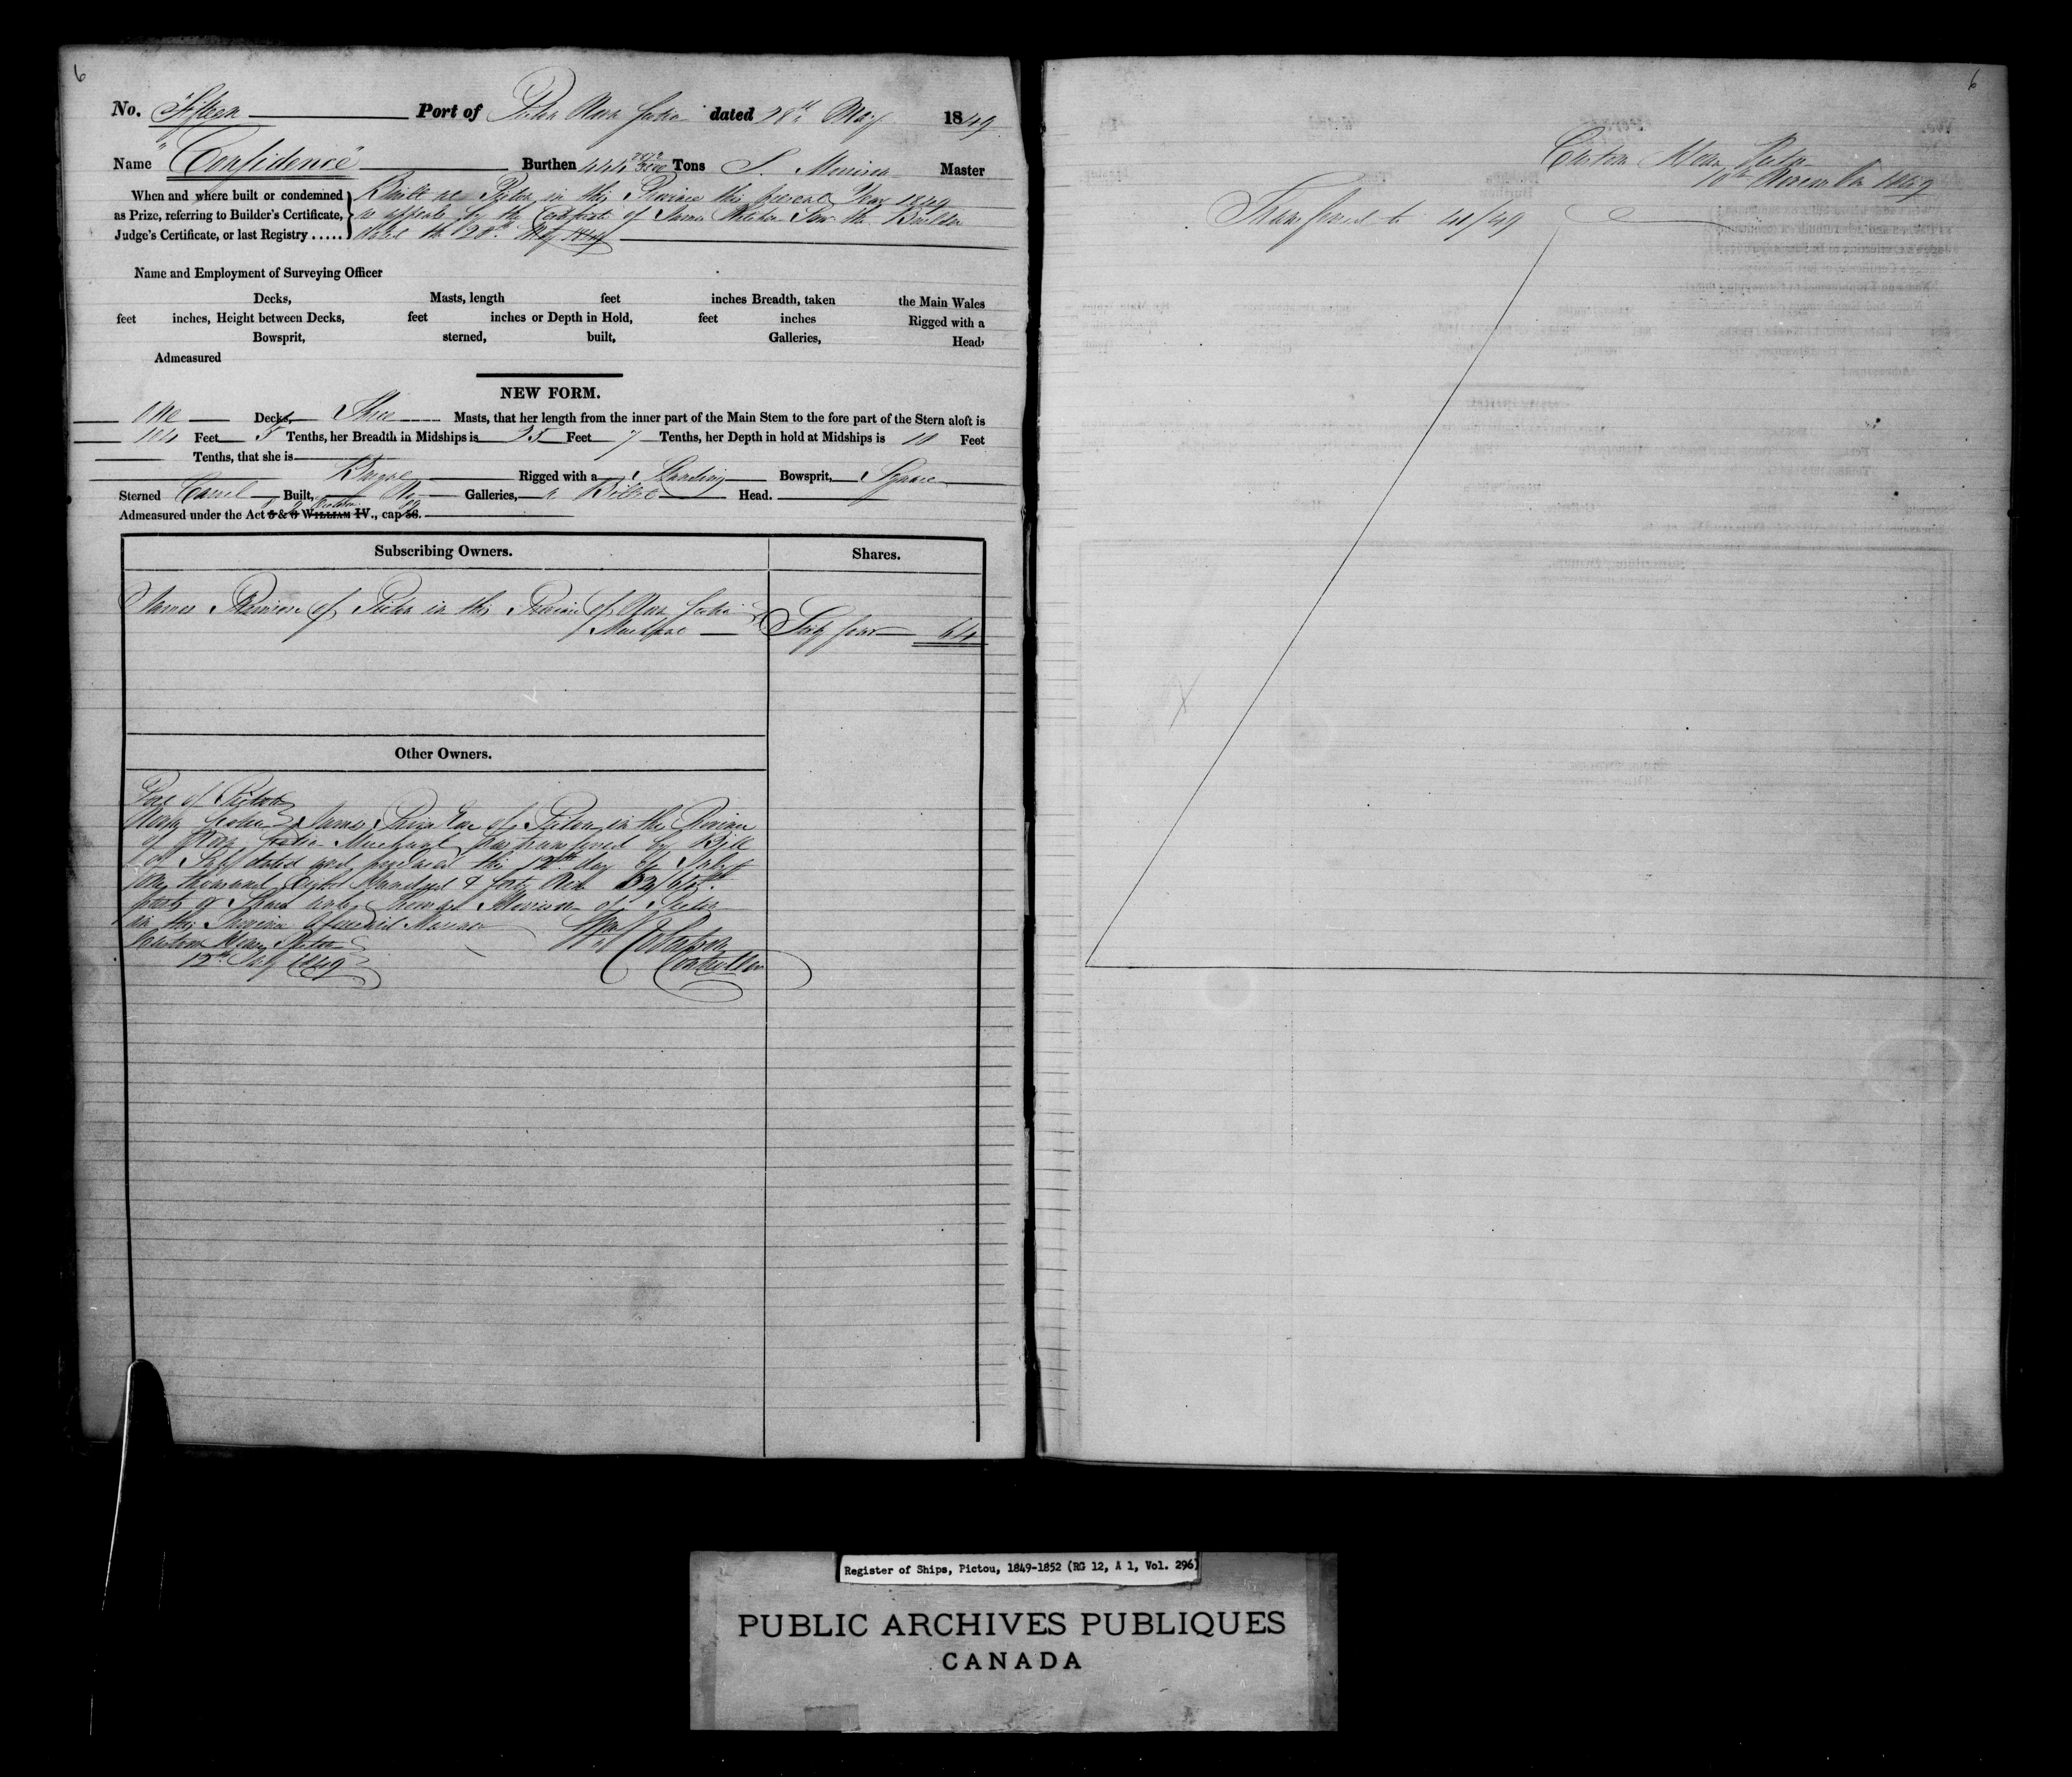 6
No. Fifteen Port of Pictou Nova Scotia dated 28th May 1849
Name "Confidence" Burthen Tons Master
When and where built or condemned
as Prize, referring to Builder's Certificate,
Judge's Certificate, or last Registry .....
Built at Pictou in this Province this present Year 1849
as appears by the Certificate of James the Builder
dated the 28th May 1849
Name and Employment of Surveying Officer
Decks, Masts, length feet inches Breadth, taken the Main Wales
feet inches, Height between Decks, feet inches or Depth in Hold, feet inches Rigged with a
Bowsprit, sterned, built, Galleries, Head,
Admeasured
NEW FORM.
One Decks, Three Masts, that her length from the inner part of the Main Stem to the fore part of the Stern aloft is
104 Feet 5 Tenths, her Breadth in Midships is 25 Feet 7 Tenths, her Depth in hold at Midships is Feet
Tenths, that she is
Barque Rigged with a Standing Bowsprit, Square
Sterned Carvel Built, No Galleries, a Billet Head.
Admeasured under the Act 5 & 6 WILLIAM IV., cap 56.
Subscribing Owners. Shares.
James of Pictou in the Province of Nova Scotia
Merchant Sixty four 64
Other Owners.
Port of Pictou
Nova Scotia James of Pictou in the Province
of Nova Scotia Merchant has transferred by Bill
of Sale dated and produced this 12th day of July
One thousand Eight Hundred & forty Nine
parts or Shares unto Thomas of Pictou
in the Province aforesaid
Custom House Pictou
12th July 1849
Controller
6
Custom House Pictou
10th November 1849
Transferred to 41/49
Register of Ships, Pictou, 1849-1852 (RG 12, A 1, Vol. 296)
PUBLIC ARCHIVES PUBLIQUES
CANADA